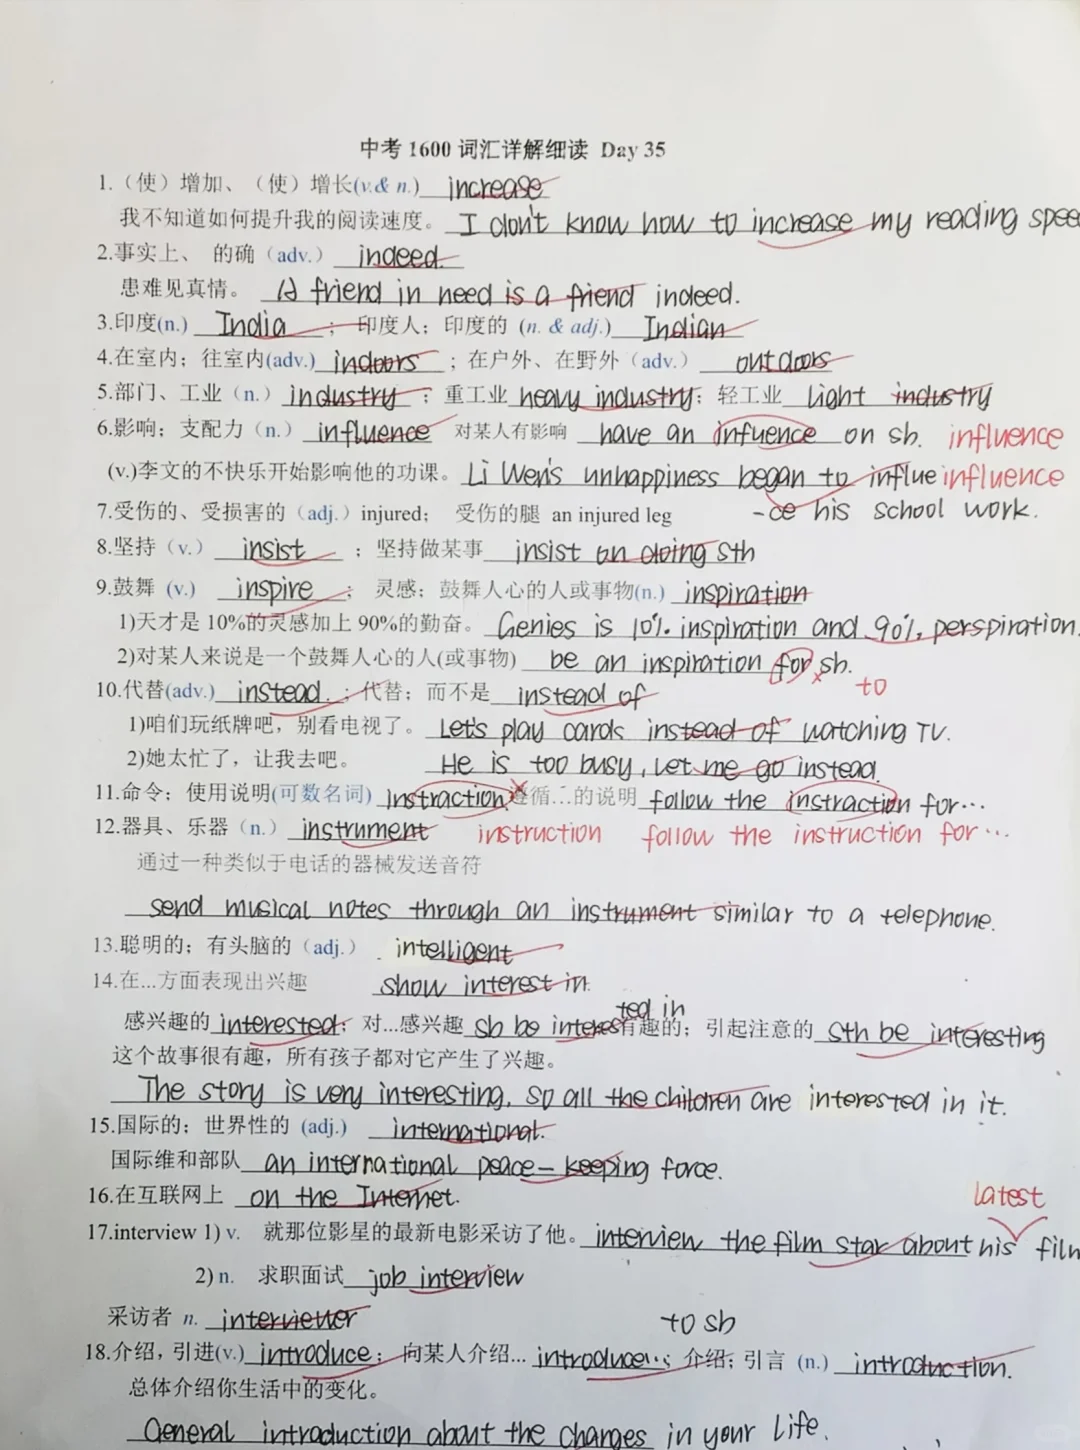 中考 1600 词汇详解细读 Day 35
1.（使）增加、（使）增长(v.& n.) increase
我不知道如何提升我的阅读速度。 I don't know how to increase my reading spee
2.事实上、 的确（adv.） indeed.
患难见真情。 A friend in need is a friend indeed.
3.印度(n.) India ; 印度人; 印度的 (n. & adj.) Indian
4.在室内; 往室内(adv.) indoors ; 在户外、在野外（adv.） outdoors
5.部门、工业（n.）industry ; 重工业 heavy industry; 轻工业 light industry
6.影响; 支配力（n.）influence 对某人有影响 have an infuence on sb. influence
(v.)李文的不快乐开始影响他的功课。Li Wen's unhappiness began to influe influence
-ce his school work.
7.受伤的、受损害的（adj.）injured; 受伤的腿 an injured leg
8.坚持（v.） insist ; 坚持做某事 insist on doing sth
9.鼓舞 (v.) inspire ; 灵感; 鼓舞人心的人或事物(n.) inspiration
1)天才是 10%的灵感加上 90%的勤奋。 Genies is 10%. inspiration and 90%. perspiration.
2)对某人来说是一个鼓舞人心的人(或事物) be an inspiration for sb.
to
10.代替(adv.) instead. ; 代替; 而不是 instead of
1)咱们玩纸牌吧，别看电视了。 Let's play cards instead of watching TV.
2)她太忙了，让我去吧。 He is too busy, let me go instead.
11.命令; 使用说明(可数名词) instraction. 遵循…的说明 follow the instraction for…
12.器具、乐器（n.） instrument instruction follow the instruction for…
通过一种类似于电话的器械发送音符
send musical notes through an instrument similar to a telephone.
13.聪明的; 有头脑的（adj.） intelligent
14.在...方面表现出兴趣 show interest in.
ted in
感兴趣的 interested; 对...感兴趣 sb be interes 有趣的; 引起注意的 sth be interesting
这个故事很有趣，所有孩子都对它产生了兴趣。
The story is very interesting, so all the children are interested in it.
15.国际的; 世界性的 (adj.) international.
国际维和部队 an international peace-keeping force.
16.在互联网上 on the Internet.
latest
17.interview 1) v. 就那位影星的最新电影采访了他。interview the film star about his film
2) n. 求职面试 job interview
采访者 n. interviewer
to sb
18.介绍, 引进(v.) introduce; 向某人介绍... introduce…; 介绍; 引言 (n.) introduction.
总体介绍你生活中的变化。
General introduction about the changes in your life.